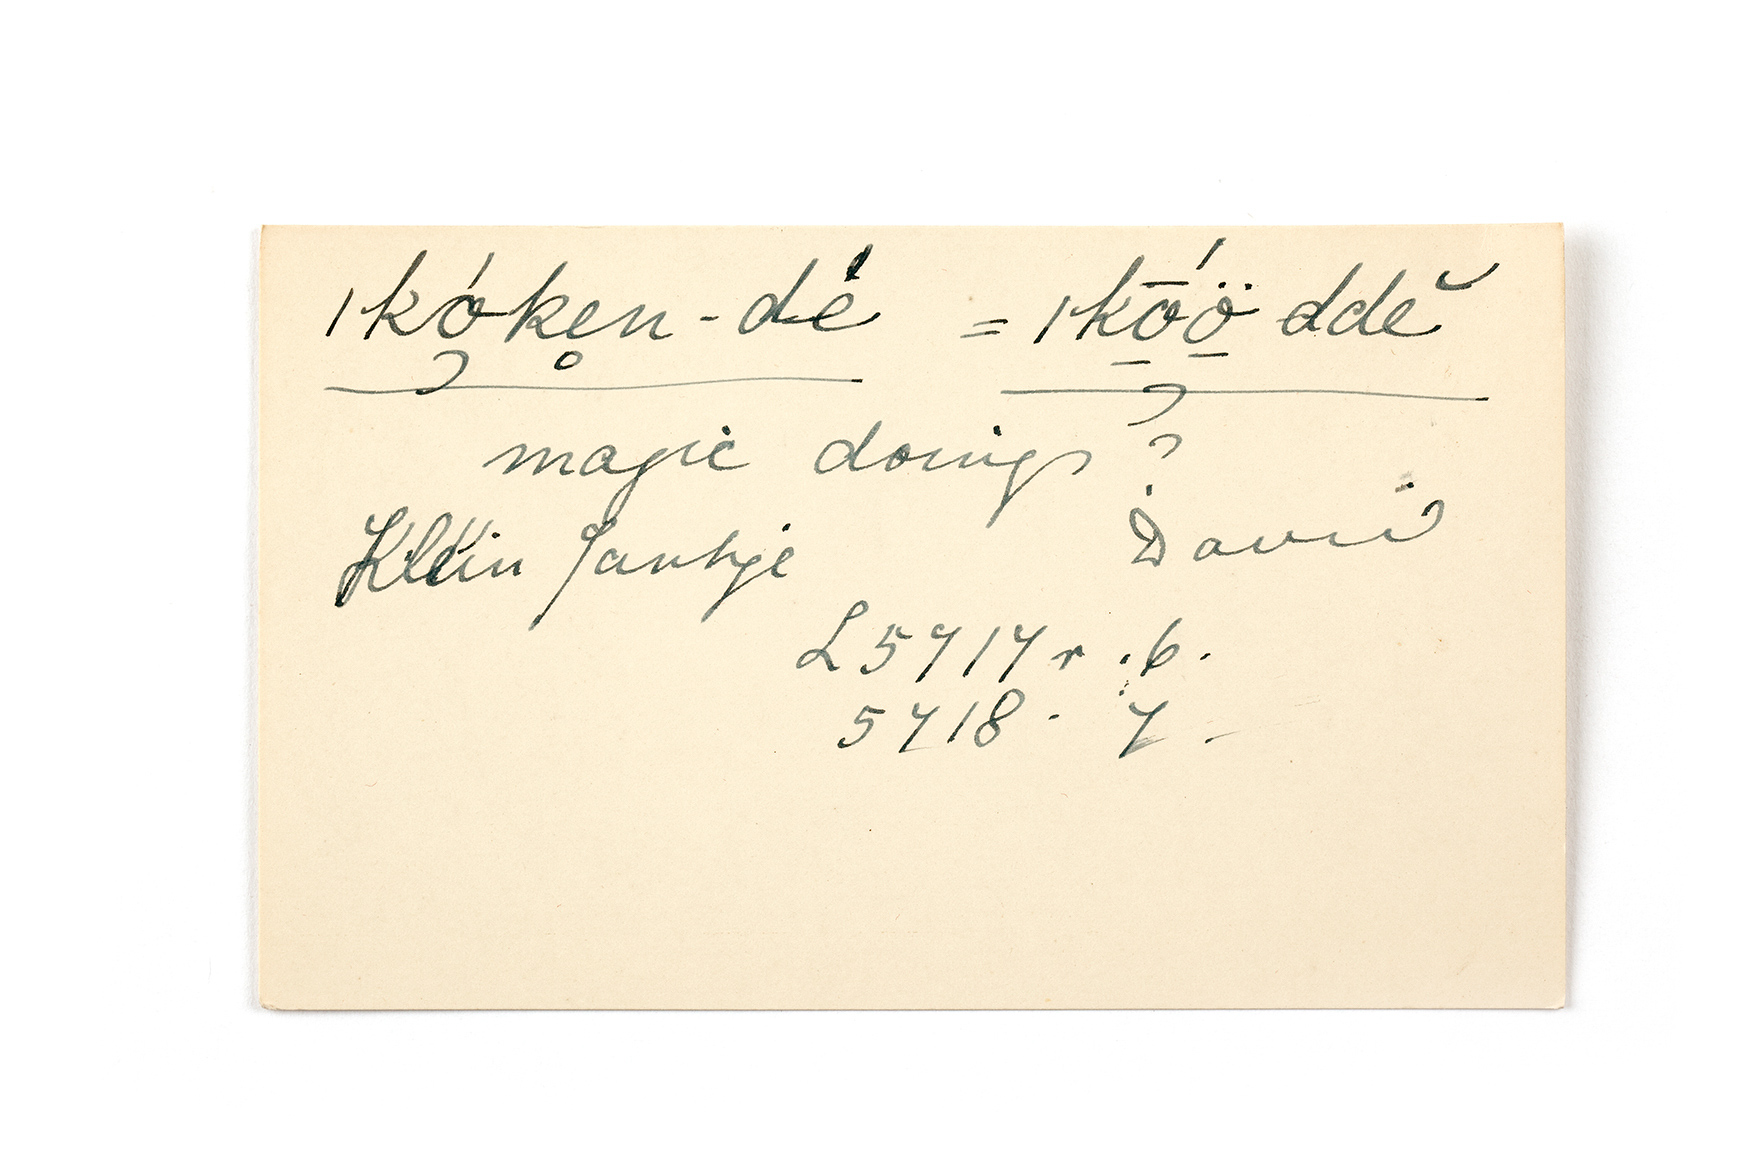 |kóken-dé = |kṓö ddĕ
magic doings ?
Klein Jantje David
L 5717 r . 6 .
5718 - 7 -